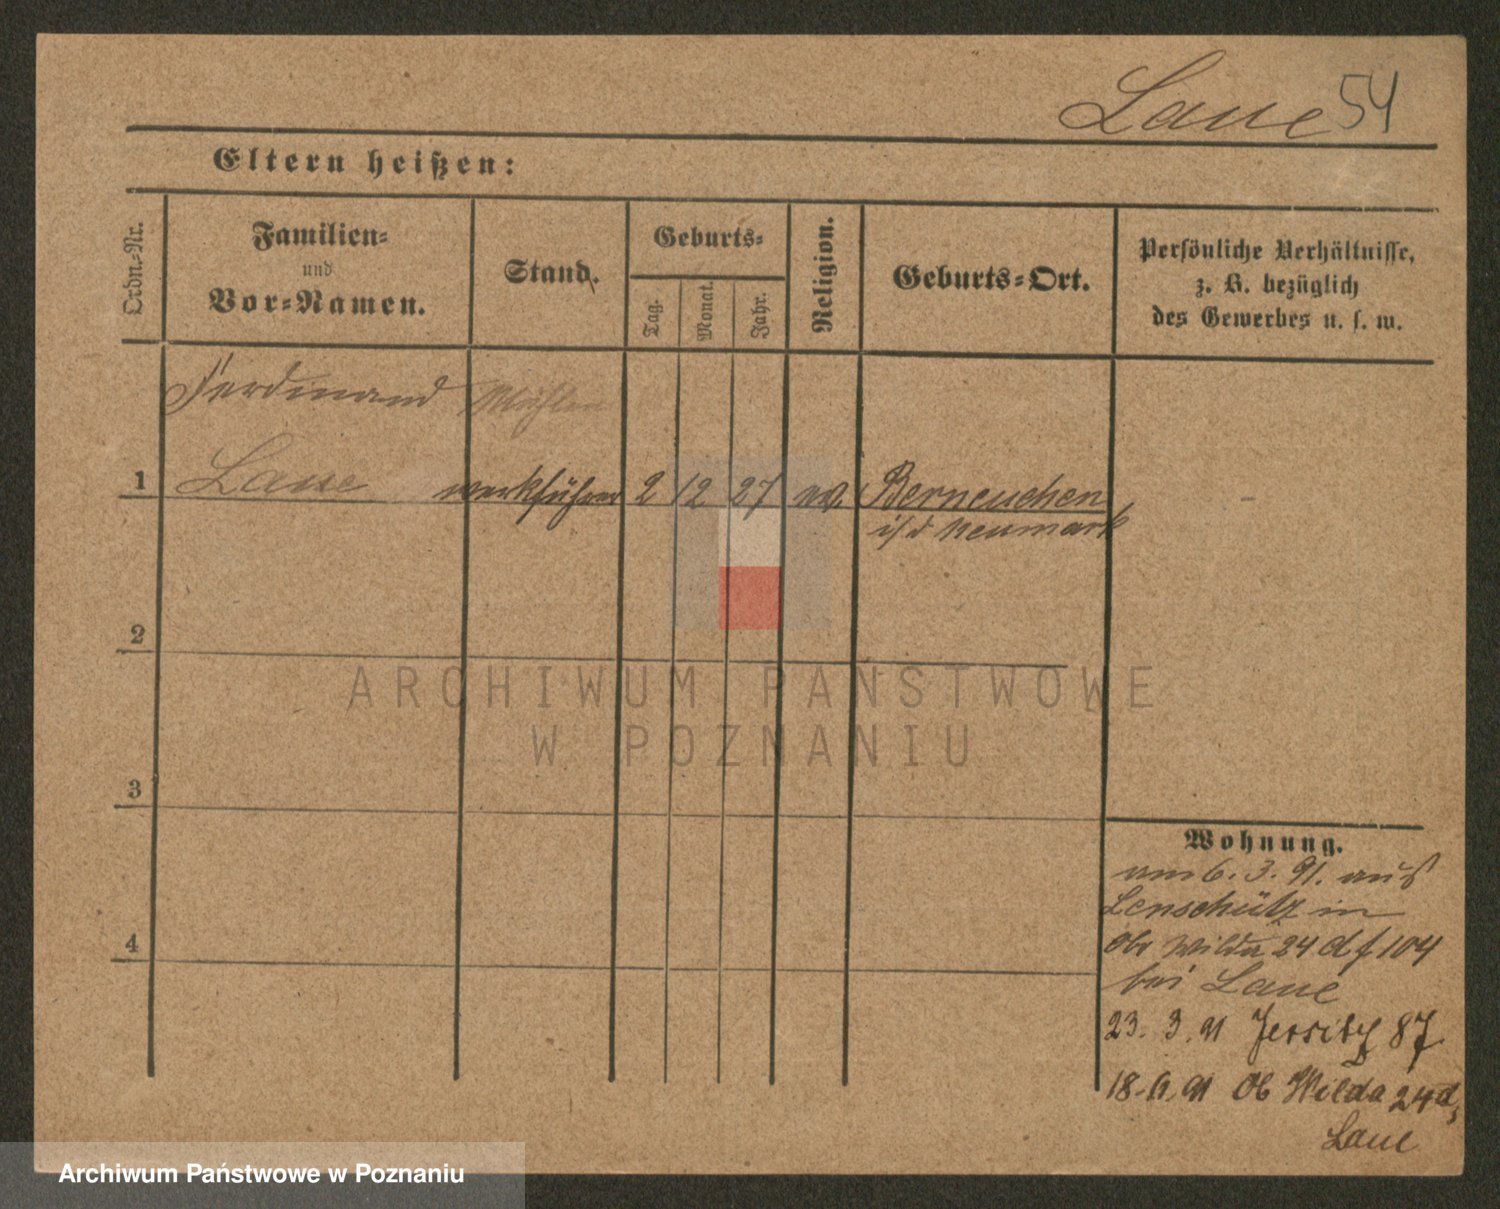 Laue 54
Eltern heißen:
Ordn.-Nr.
Familien-
und
Vor-Namen.
Stand.
Geburts-
Tag.
Monat.
Jahr.
Religion.
Geburts-Ort.
Persönliche Verhältnisse,
z. B. bezüglich
des Gewerbes u. s. w.
Ferdinand Mühlen
1 Laue werkführer 2 12 27 ev. Berneuchen
i/d Neumark
2
3
4
ARCHIWUM PAŃSTWOWE
W POZNANIU
Wohnung.
am 6. 3. 91. aus
Lenschütz in
Ob Wilda 24 d f 104
bei Laue
23. 3. 91 Jersitz 87
18. 6. 91 Ob Wilda 24d,
Laue
Archiwum Państwowe w Poznaniu